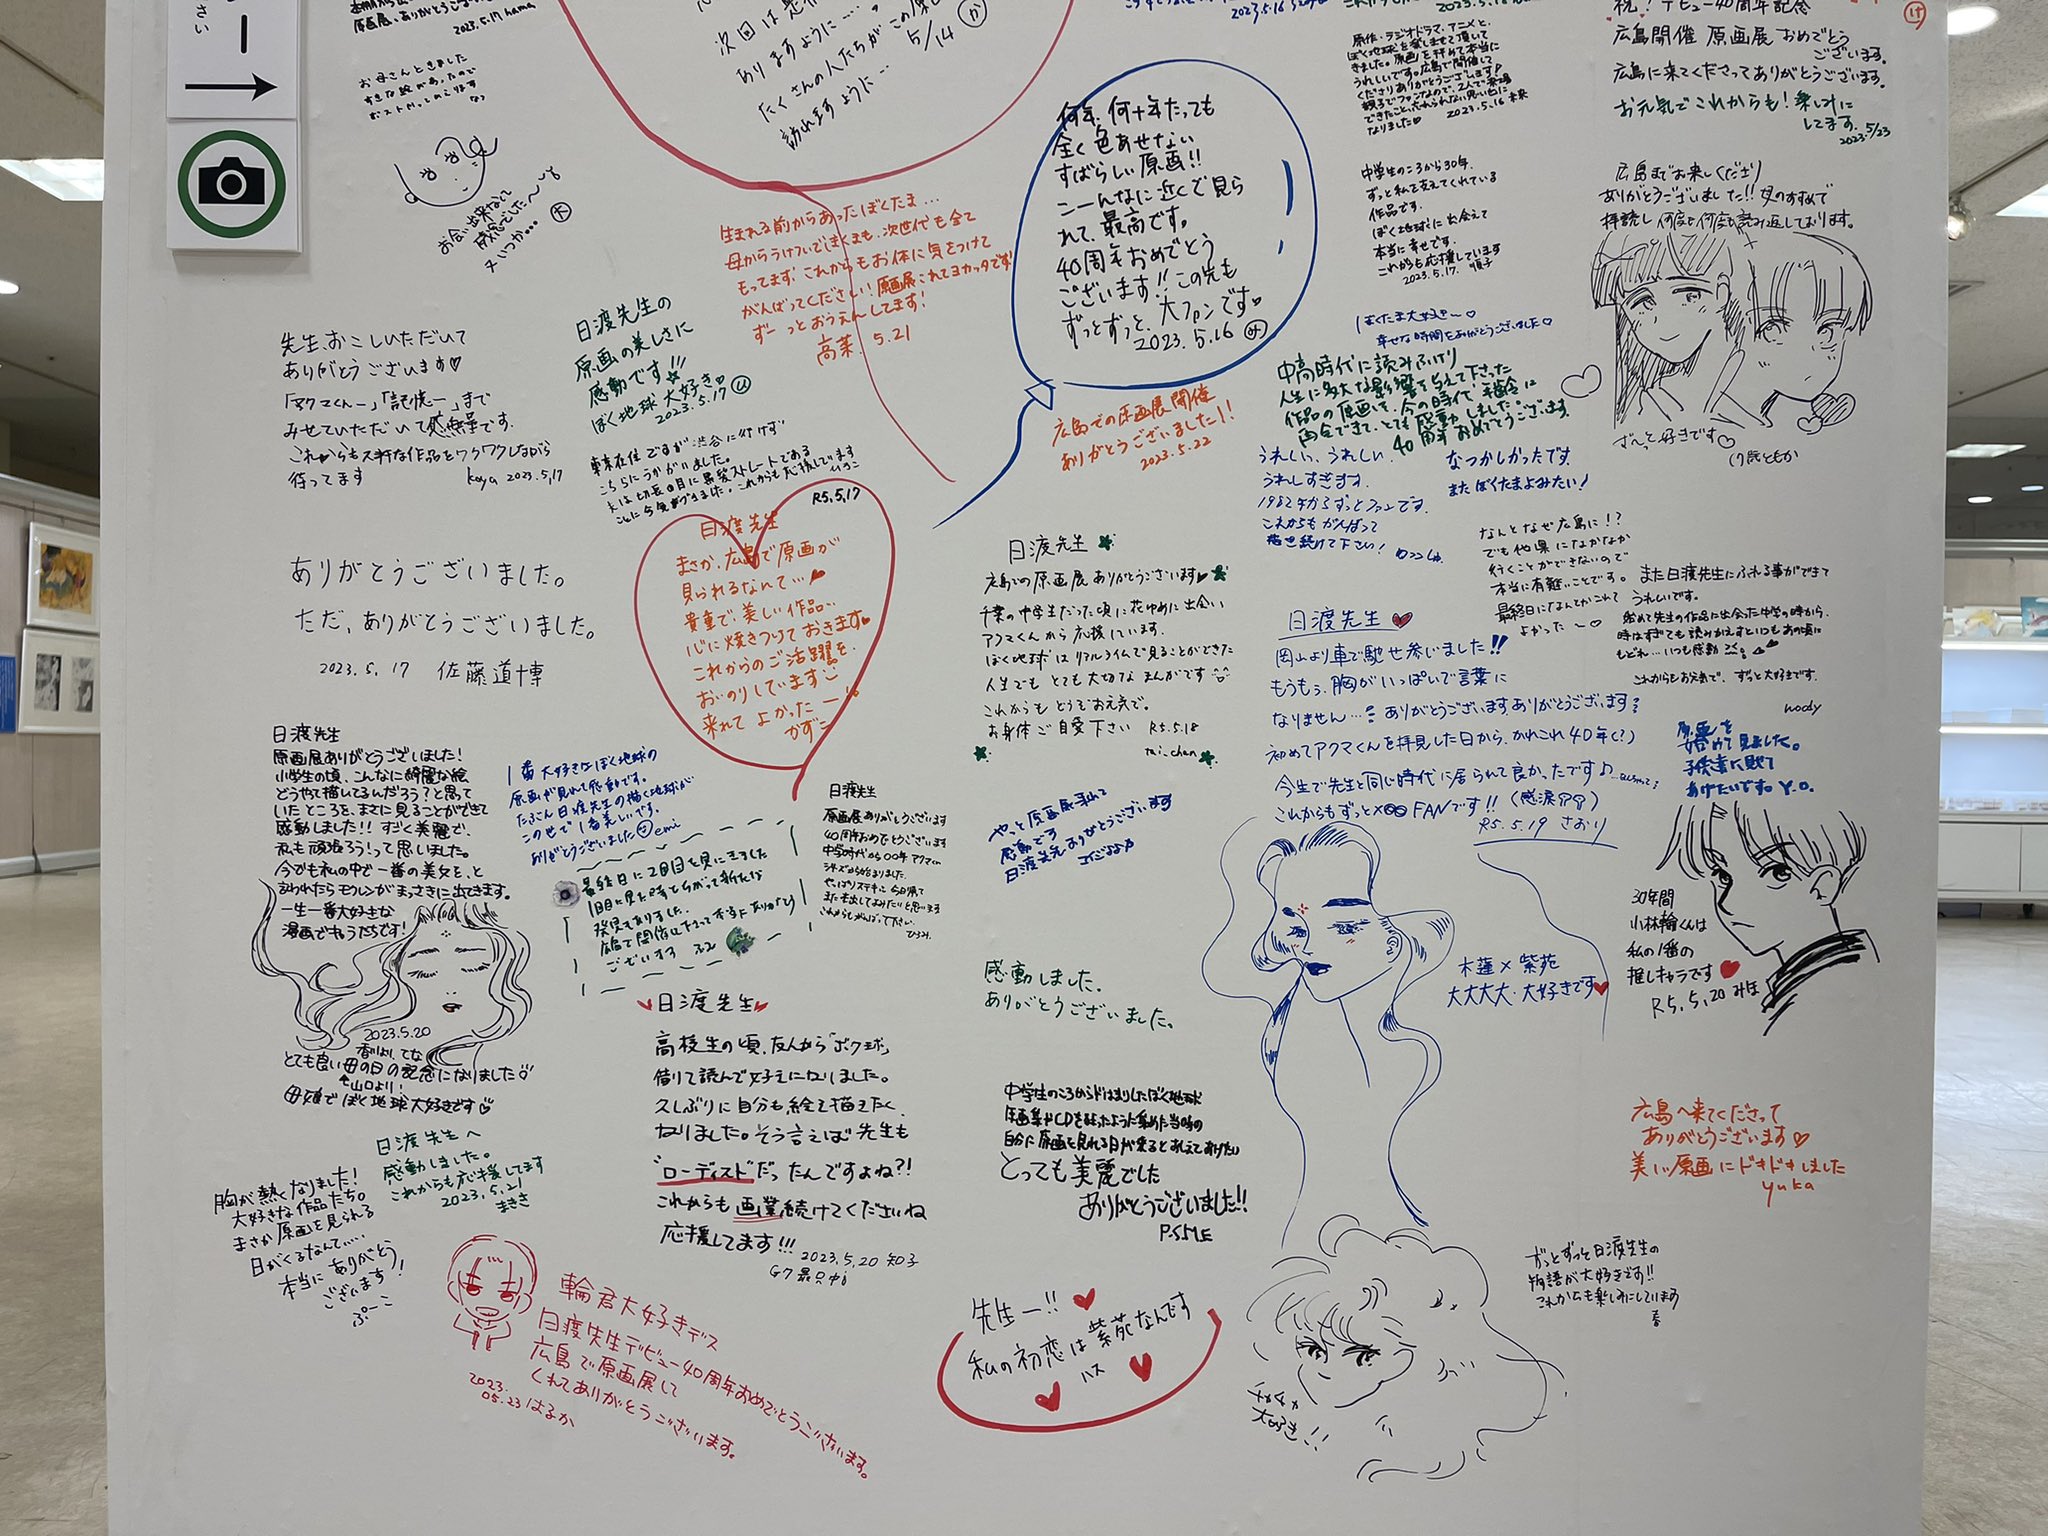 さい
原画展、ありがとうご
2023.5.17 hama
お母さんときました
すきな絵があったので
次回は
ありますように…
たくさんの人たちがこの
訪れますように…
5/14 か
お会い出来なくて
残念でした〜
またいつか…
原作・ラジオドラマ・アニメと、
ぼく地球を楽しませて頂いて
きました。原画を拝めて本当に
うれしいです。広島で開催して
くださりありがとうございます♪
親子でファンなので、2人で来場
できたこと、忘れられない思い出に
なりました♡ 2023.5.16 未来
祝!デビュー40周年記念
広島開催 原画展 おめでとう
ございます。
広島に来てくださってありがとうございます。
お元気でこれからも!楽しみに
してます。
2023.5/23
何年、何十年たっても
全く色あせない
すばらしい原画!!
こーんなに近くで見ら
れて、最高です。
40周年おめでとう
ございます!!この先も
ずっとずっと、大ファンです♡
2023.5.16
中学生のころから30年、
ずっと私を支えてくれている
作品です。
ぼく地球に出会えて
本当に幸せです。
これからも応援しています
2023.5.17. 順子
広島までお来しくださり
ありがとうございました!!母のすすめで
拝読し何度も何度も読み返しております。
ずーっと好きです♡
生まれる前からあったぼくたま…
母からうけついできくまも、次世代も全て
もってます!これからもお体に気をつけて
がんばってください!原画展これてヨカッタです!
ずーっとおうえんしてます!
高菜. 5.21
日渡先生の
原画の美しさに
感動です☆!!
ぼく地球 大好き♡
2023.5.17 U
先生、おこしいただいて
ありがとうございます♡
「アクマくん―」「記憶―」まで
みせていただいて感無量です。
これからもステキな作品をワクワクしながら
待ってます koya 2023.5.17
東京在住ですが渋谷に行けず
こちらにうかがいました。
ぼくたま大好き〜♡
幸せな時間をありがとうございました♡
中高時代に読みふけり
人生に多大な影響を与えて下さった
作品の原画を、今の時代、
再会できて、とても感動しました。
40周年おめでとうございます。
広島での原画展開催
ありがとうございました!!
2023.5.22
うれしい、うれしい、
うれしすぎます。
1982年からずっとファンです。
これからもがんばって
描き続けて下さい!
なつかしかったです。
またぼくたまよみたい!
R5.5.17
日渡先生
まさか、広島で原画が
見られるなんて…♥
貴重で、美しい作品…
心に焼きつけておきます♥
これからのご活躍を、
おいのりしています
来れて よかったー!!
かずこ
ありがとうございました。
ただ、ありがとうございました。
2023.5.17 佐藤道博
日渡先生
広島での原画展ありがとうございます♥
千葉の中学生だった頃に花ゆめに出会い
アクマくんから応援しています。
ぼく地球はリアルタイムで見ることができた
人生でも とても大切な まんがです
これからも どうぞお元気で。
お身体ご自愛下さい R5.5.18
tai_chan
なんとなぜ広島に!?
でも他県になかなか
行くことができないので
本当に有難いことです。
最終日になんとかこれて
よかった〜♡
また日渡先生にふれる事ができて
うれしいです。
初めて先生の作品に出会った中学の時から、
時はすぎても読みかえすといつもあの頃に
もどれ…いつも感動
これからもお元気で、ずっと大好きです。
nody
日渡先生 ♥
岡山より車で馳せ参じました!!
もうもう、胸がいっぱいで言葉に
なりません…ありがとうございます、ありがとうございます
初めてアクマくんを拝見した日から、かれこれ40年(?)
今生で先生と同じ時代に居られて良かったです♪
これからもずっとFANです!!(感涙)
R5.5.19 さおり
原画を
初めて見ました。
子供達に見せて
あげたいです。Y.O.
日渡先生
原画展ありがとうございました!
小学生の頃、こんなに綺麗な絵
どうやって描いてるんだろう?と思って
いたところを、まさに見ることができて
感動しました!!すごく美麗で、
私も頑張ろう!って思いました。
今でも私の中で一番の美女を、と
言われたらモクレンがまっさきに出てきます。
一生一番大好きな
漫画でキャラたちです!
2023.5.20
1番大好きなぼく地球の
原画が見れて感動です。
たぶん日渡先生の描く地球が
この世で1番美しいです。
ありがとうございました emi
最終日に2回目を見にきました
1回目に見た時とちがって新たな
発見もありました。
広島で開催して下さって本当にありがとう
ございます
日渡先生
原画展ありがとうございます
40周年おめでとうございます
やっと原画展来れて
感動です
日渡先生ありがとうございます
30年間
小林輪くんは
私の1番の
推しキャラです♥
R5.5.20 みほ
木蓮×紫苑
大大大大・大好きです♥
感動しました。
ありがとうございました。
とても良い母の日の記念になりました
山口より!
母娘でぼく地球大好きです
日渡先生
高校生の頃、友人から「ボクタマ」
借りて読んで好きになりました。
久しぶりに自分も絵を描きたく、
なりました。そう言えば先生も
"ローディスト"だったんですよね?!
これからも画業続けてくださいね
応援してます!!! 2023.5.20 知子
中学生のころからドはまりしたぼく地球
原画集やCDを狂ったように集めた当時の
自分に原画を見れる日が来るとおしえてあげたい
とっても美麗でした
ありがとうございました!!
広島へ来てくださって
ありがとうございます♡
美しい原画にドキドキしました
yuka
日渡先生へ
感動しました。
これからも応援してます
2023.5.21
まさき
胸が熱くなりました!
大好きな作品たち。
まさか原画を見られる
日がくるなんて……
本当にありがとう
ございます!
ぷーこ
輪君大好きデス
日渡先生デビュー40周年おめでとうございます。
広島で原画展して
くれてありがとうございます。
2023.
05.23 はるか
先生ー!!♥
私の初恋は紫苑なんです
ずっとずっと日渡先生の
物語が大好きです!!
これからも楽しみにしています
春
大好き!!